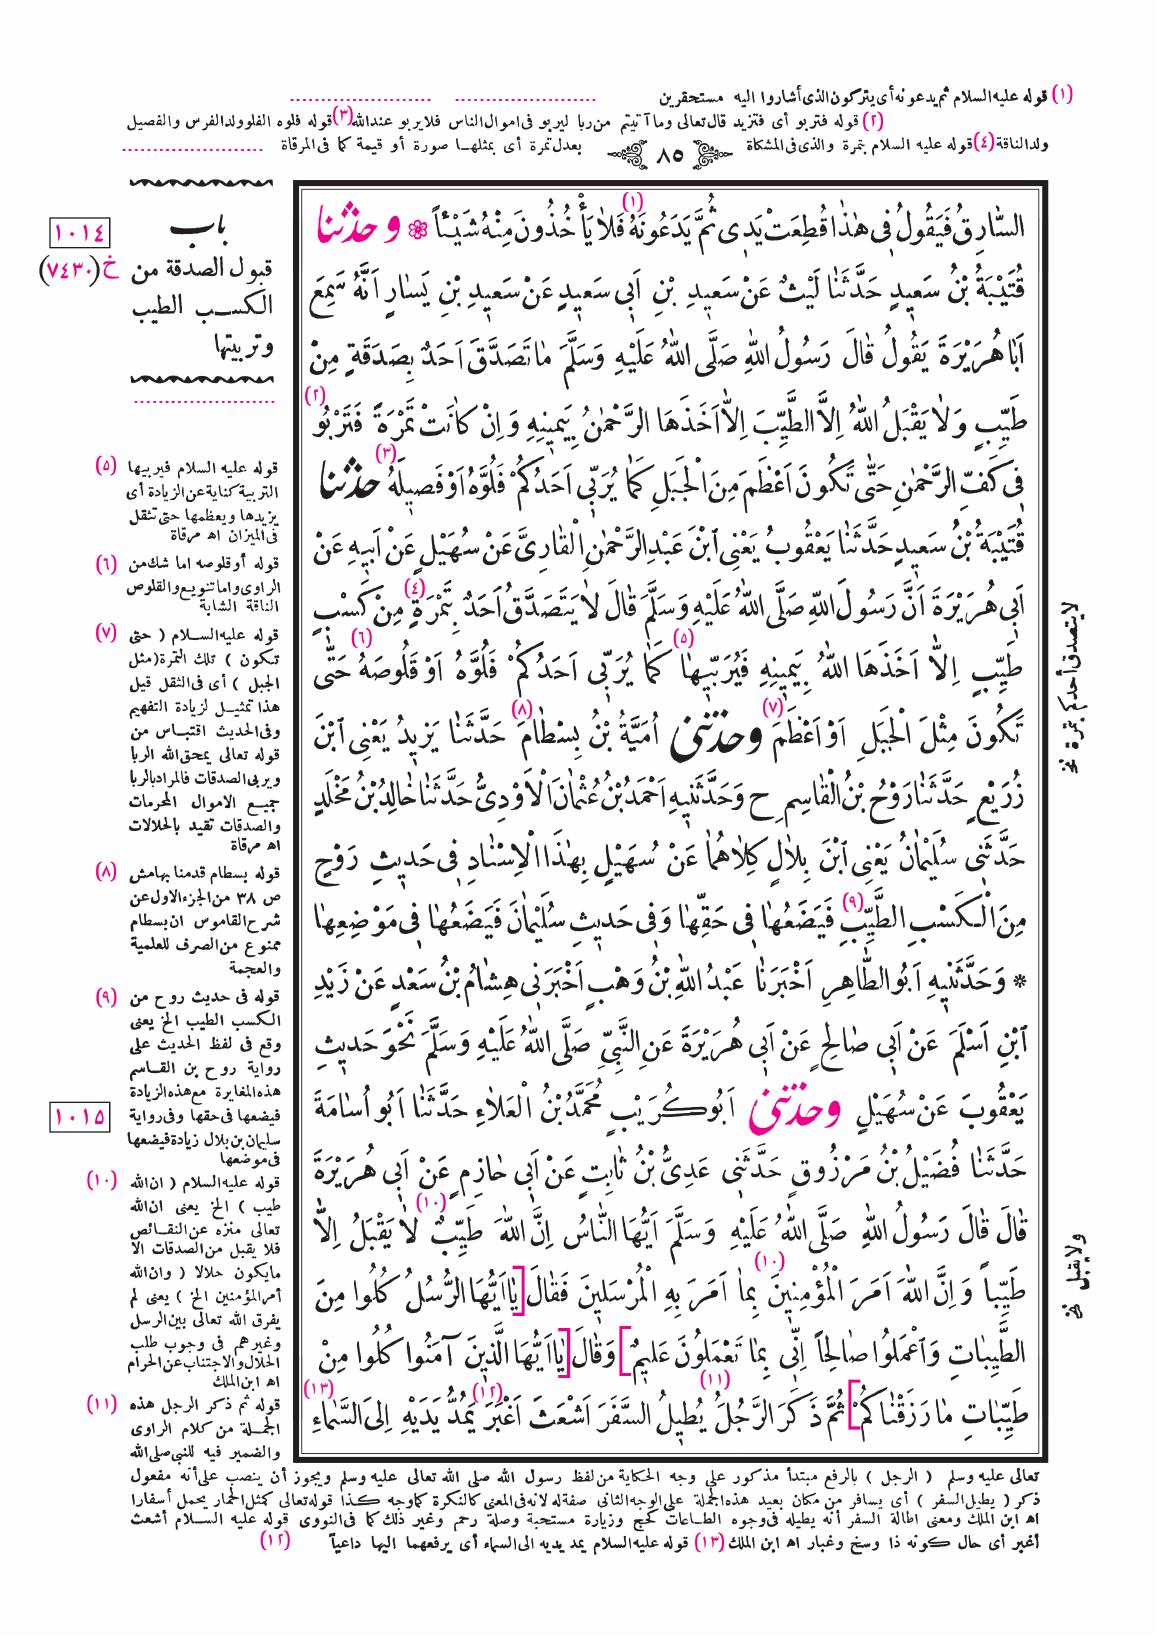 (١) قوله عليه السلام ثم يدعونه أى يتركون الذى أشاروا اليه مستحقرين
(٢) قوله فتربو أى فتزيد قال تعالى وما آتيتم من ربا ليربو فى اموال الناس فلا يربو عند الله (٣) قوله فلوه الفلو ولد الفرس والفصيل
ولد الناقة (٤) قوله عليه السلام بتمرة والذى فى المشكاة بعدل تمرة أى بمثلهـا صورة أو قيمة كما فى المرقاة
٨٥
السَّارِقُ فَيَقُولُ فِى هٰذَا قُطِعَتْ يَدِى ثُمَّ يَدَعُونَهُ (١) فَلَا يَأْخُذُونَ مِنْهُ شَيْئاً ۞ وحدثنا
قُتَيْبَةُ بْنُ سَعِيدٍ حَدَّثَنَا لَيْثٌ عَنْ سَعِيدِ بْنِ اَبِى سَعِيدٍ عَنْ سَعِيدِ بْنِ يَسَارٍ اَنَّهُ سَمِعَ
اَبَا هُرَيْرَةَ يَقُولُ قَالَ رَسُولُ اللهِ صَلَّى اللهُ عَلَيْهِ وَسَلَّمَ مَا تَصَدَّقَ اَحَدٌ بِصَدَقَةٍ مِنْ
طَيِّبٍ وَلَا يَقْبَلُ اللهُ اِلَّا الطَّيِّبَ اِلَّا اَخَذَهَا الرَّحْمٰنُ بِيَمِينِهِ وَاِنْ كَانَتْ تَمْرَةً فَتَرْبُو (٢)
فِى كَفِّ الرَّحْمٰنِ حَتّٰى تَكُونَ اَعْظَمَ مِنَ الْجَبَلِ كَمَا يُرَبِّى اَحَدُكُمْ فَلُوَّهُ (٣) اَوْ فَصِيلَهُ حدثنا
قُتَيْبَةُ بْنُ سَعِيدٍ حَدَّثَنَا يَعْقُوبُ يَعْنِى ابْنَ عَبْدِ الرَّحْمٰنِ الْقَارِىَّ عَنْ سُهَيْلٍ عَنْ اَبِيهِ عَنْ
اَبِى هُرَيْرَةَ اَنَّ رَسُولَ اللهِ صَلَّى اللهُ عَلَيْهِ وَسَلَّمَ قَالَ لَا يَتَصَدَّقُ اَحَدٌ بِتَمْرَةٍ (٤) مِنْ كَسْبٍ
طَيِّبٍ اِلَّا اَخَذَهَا اللهُ بِيَمِينِهِ فَيُرَبِّيهَا (٥) كَمَا يُرَبِّى اَحَدُكُمْ فَلُوَّهُ اَوْ قَلُوصَهُ (٦) حَتّٰى
تَكُونَ مِثْلَ الْجَبَلِ اَوْ اَعْظَمَ (٧) وحدثنى اُمَيَّةُ بْنُ بِسْطَامَ (٨) حَدَّثَنَا يَزِيدُ يَعْنِى ابْنَ
زُرَيْعٍ حَدَّثَنَا رَوْحُ بْنُ الْقَاسِمِ ح وَحَدَّثَنِيهِ اَحْمَدُ بْنُ عُثْمَانَ الْاَوْدِىُّ حَدَّثَنَا خَالِدُ بْنُ مَخْلَدٍ
حَدَّثَنِى سُلَيْمَانُ يَعْنِى ابْنَ بِلَالٍ كِلَاهُمَا عَنْ سُهَيْلٍ بِهٰذَا الْاِسْنَادِ فِى حَدِيثِ رَوْحٍ
مِنَ الْكَسْبِ الطَّيِّبِ (٩) فَيَضَعُهَا فِى حَقِّهَا وَفِى حَدِيثِ سُلَيْمَانَ فَيَضَعُهَا فِى مَوْضِعِهَا
* وَحَدَّثَنِيهِ اَبُو الطَّاهِرِ اَخْبَرَنَا عَبْدُ اللهِ بْنُ وَهْبٍ اَخْبَرَنِى هِشَامُ بْنُ سَعْدٍ عَنْ زَيْدِ
ابْنِ اَسْلَمَ عَنْ اَبِى صَالِحٍ عَنْ اَبِى هُرَيْرَةَ عَنِ النَّبِىِّ صَلَّى اللهُ عَلَيْهِ وَسَلَّمَ نَحْوَ حَدِيثِ
يَعْقُوبَ عَنْ سُهَيْلٍ وحدثنى اَبُو كُرَيْبٍ مُحَمَّدُ بْنُ الْعَلَاءِ حَدَّثَنَا اَبُو اُسَامَةَ
حَدَّثَنَا فُضَيْلُ بْنُ مَرْزُوقٍ حَدَّثَنِى عَدِىُّ بْنُ ثَابِتٍ عَنْ اَبِى حَازِمٍ عَنْ اَبِى هُرَيْرَةَ
قَالَ قَالَ رَسُولُ اللهِ صَلَّى اللهُ عَلَيْهِ وَسَلَّمَ اَيُّهَا النَّاسُ اِنَّ اللهَ طَيِّبٌ (١٠) لَا يَقْبَلُ اِلَّا
طَيِّباً وَاِنَّ اللهَ اَمَرَ الْمُؤْمِنِينَ (١٠) بِمَا اَمَرَ بِهِ الْمُرْسَلِينَ فَقَالَ [يَا اَيُّهَا الرُّسُلُ كُلُوا مِنَ
الطَّيِّبَاتِ وَاعْمَلُوا صَالِحاً اِنِّى بِمَا تَعْمَلُونَ عَلِيمٌ] وَقَالَ [يَا اَيُّهَا الَّذِينَ آمَنُوا كُلُوا مِنْ
طَيِّبَاتِ مَا رَزَقْنَاكُمْ] ثُمَّ ذَكَرَ الرَّجُلَ (١١) يُطِيلُ السَّفَرَ اَشْعَثَ اَغْبَرَ (١٢) يَمُدُّ يَدَيْهِ اِلَى السَّمَاءِ (١٣)
١٠١٤
خ (٧٤٣٠)
باب
قبول الصدقة من
الكسـب الطيب
وتربيتها
(٥) قوله عليه السلام فيربيها
التربية كناية عن الزيادة أى
يزيدها ويعظمها حتى تثقل
فى الميزان اه مرقاة
(٦) قوله أو قلوصه اما شك من
الراوى واما تنويع والقلوص
الناقة الشابة
(٧) قوله عليه السـلام ( حتى
تكون ) تلك التمرة (مثل
الجبل ) أى فى الثقل قيل
هذا تمثيـل لزيادة التفهيم
وفى الحديث اقتبـاس من
قوله تعالى يمحق الله الربا
ويربى الصدقات فالمراد بالربا
جميع الاموال المحرمات
والصدقات تقيد بالحلالات
اه مرقاة
(٨) قوله بسطام قدمنا بهامش
ص ٣٨ من الجزء الاول عن
شرح القاموس ان بسطام
ممنوع من الصرف للعلمية
والعجمة
(٩) قوله فى حديث روح من
الكسب الطيب الخ يعنى
وقع فى لفظ الحديث على
رواية روح بن القـاسم
هذه المغايرة مع هذه الزيادة
فيضعها فى حقها وفى رواية
سليمان بن بلال زيادة فيضعها
فى موضعها
١٠١٥
(١٠) قوله عليه السلام ( ان الله
طيب ) الخ يعنى ان الله
تعالى منزه عن النقـائص
فلا يقبل من الصدقات الا
ما يكون حلالا ( وان الله
أمر المؤمنين الخ ) يعنى لم
يفرق الله تعالى بين الرسل
وغيرهم فى وجوب طلب
الحلال والاجتناب عن الحرام
اه ابن الملك
(١١) قوله ثم ذكر الرجل هذه
الجمـلة من كلام الراوى
والضمير فيه للنبى صلى الله
لا يتصدق أحدكم بتمرة نخ
ولا يقبل نخ
تعالى عليه وسلم ( الرجل ) بالرفع مبتدأ مذكور على وجه الحكاية من لفظ رسول الله صلى الله تعالى عليه وسلم ويجوز أن ينصب على أنه مفعول
ذكر ( يطيل السفر ) أى يسافر من مكان بعيد هذه الجملة على الوجه الثانى صفة له لانه فى المعنى كالنكرة كما وجه كـذا قوله تعالى كمثل الحمار يحمل أسفارا
اه ابن الملك ومعنى اطالة السفر أنه يطيله فى وجوه الطـاعات كحج وزيارة مستحبة وصلة رحم وغير ذلك كما فى النووى قوله عليه السـلام أشعث
أغبر أى حال كونه ذا وسخ وغبار اه ابن الملك (١٣) قوله عليه السلام يمد يديه الى السماء أى يرفعهما اليها داعياً (١٢)